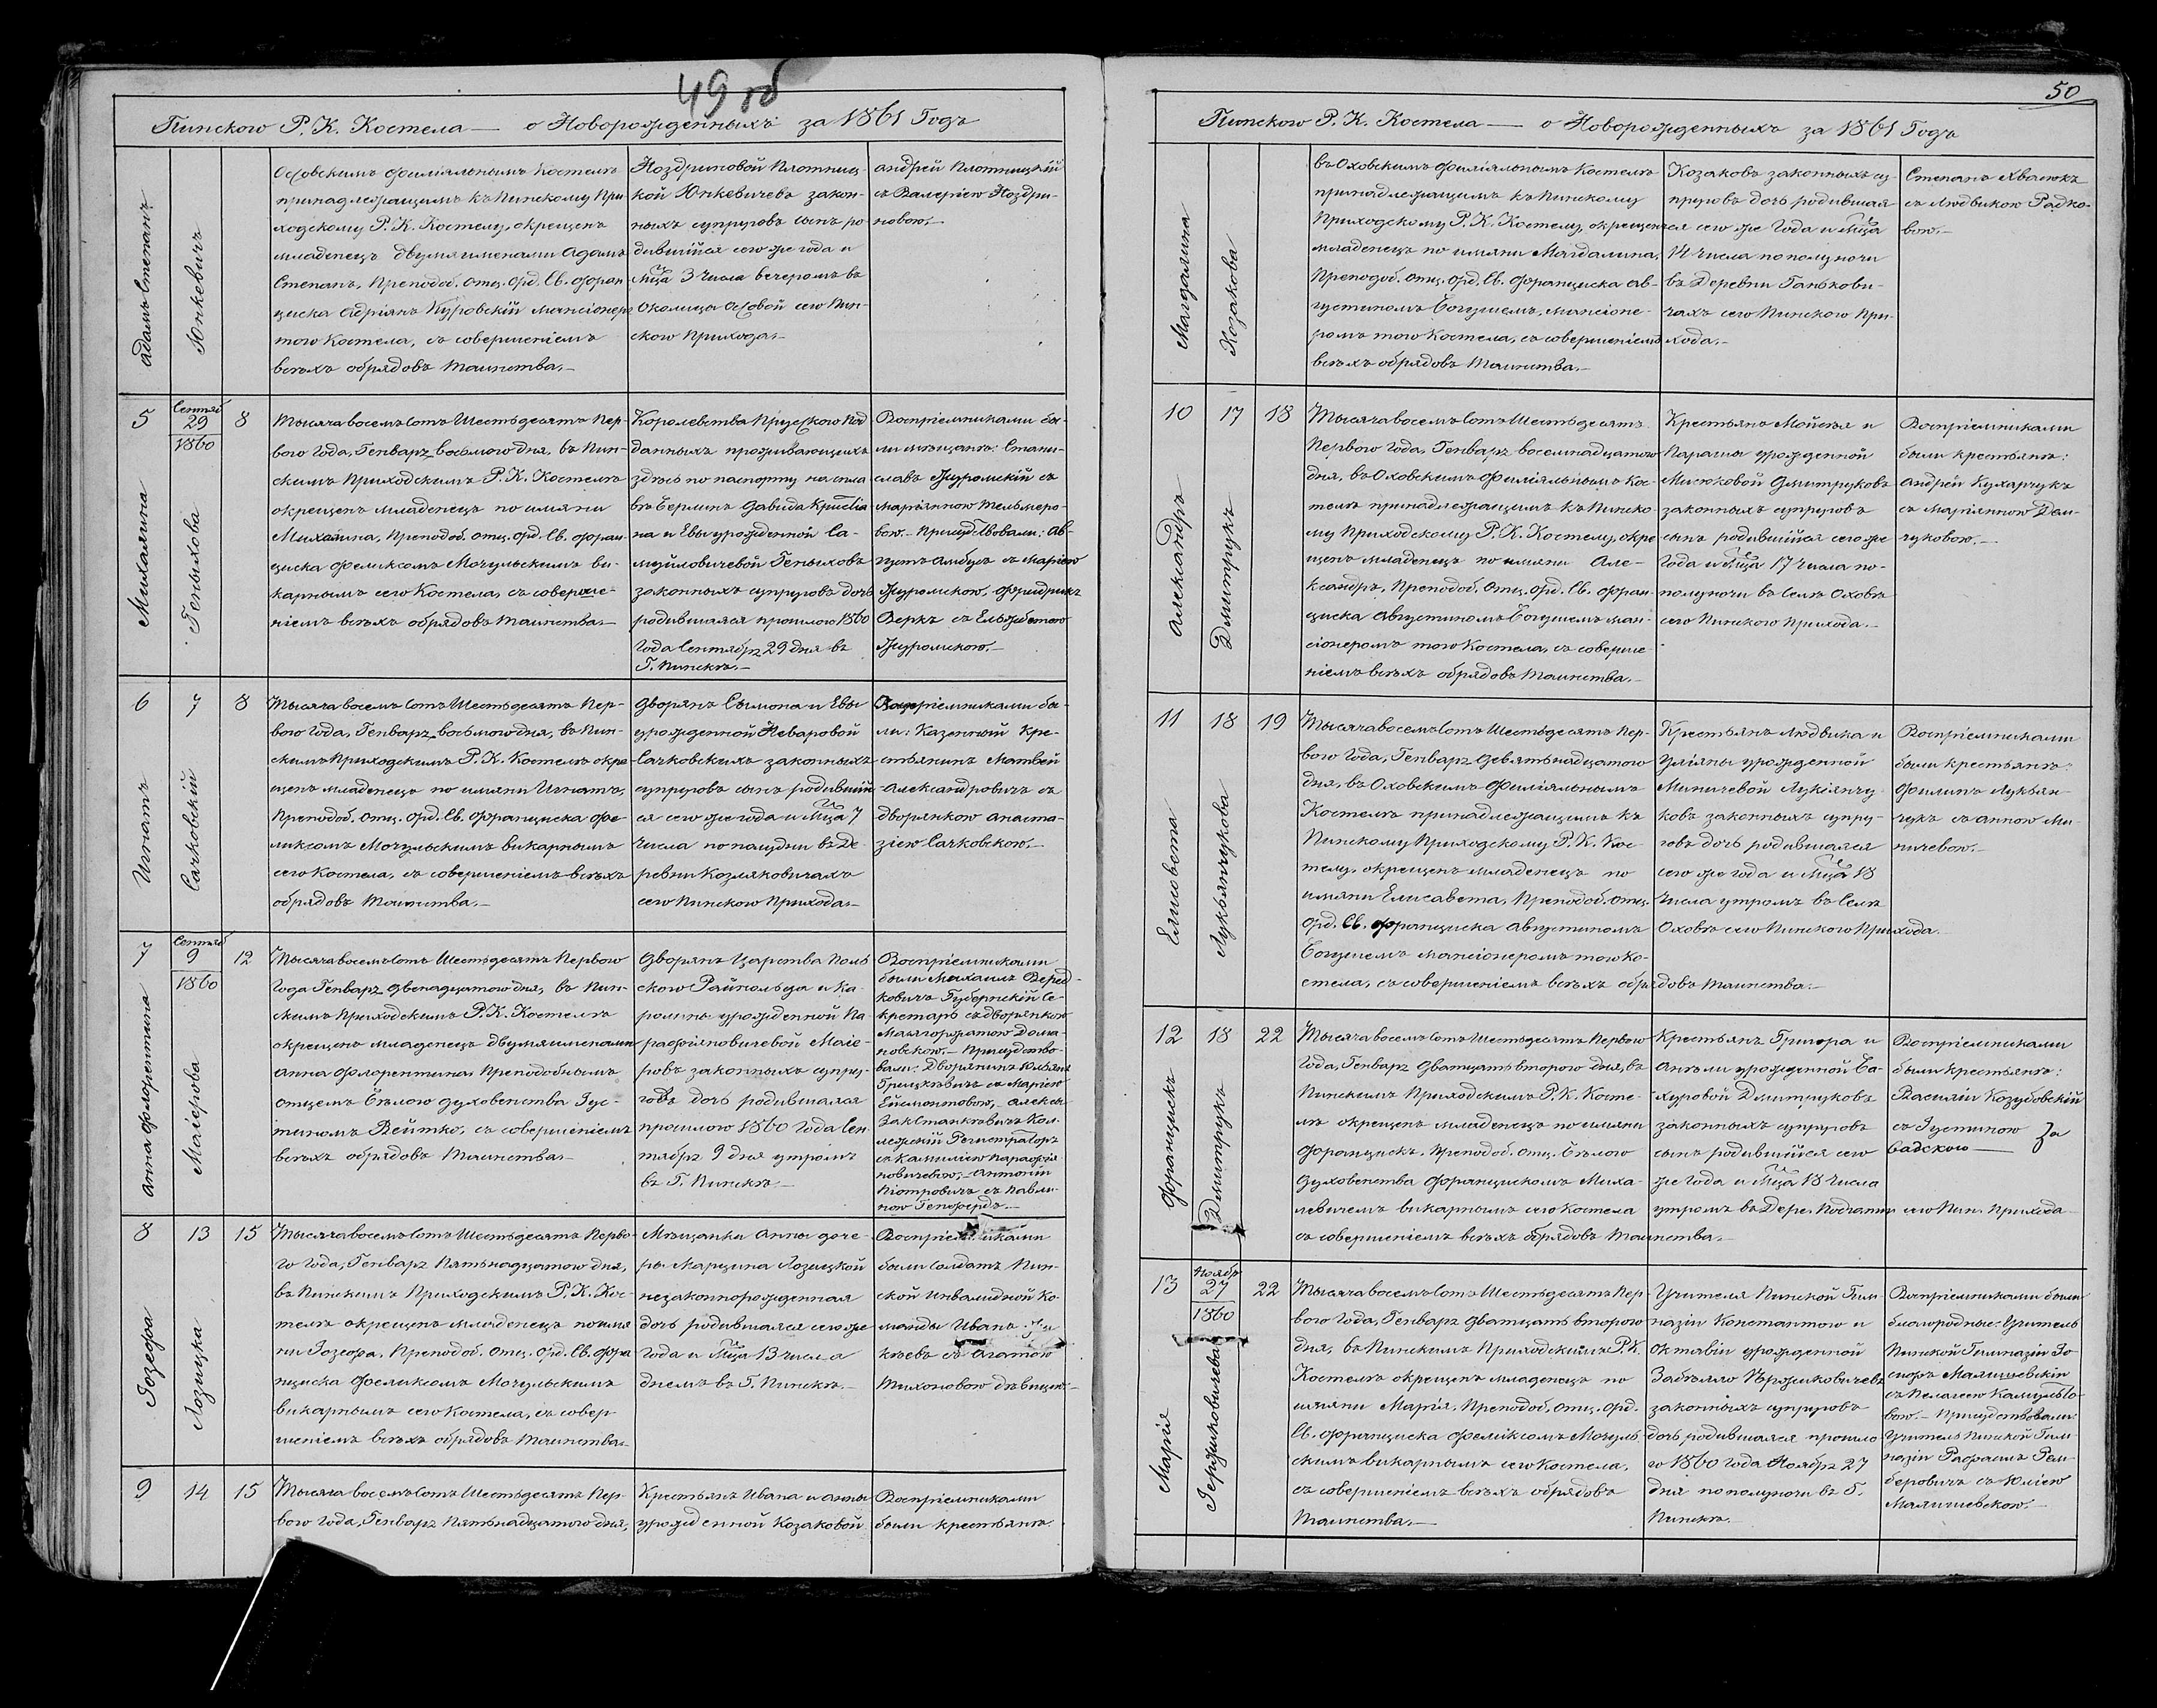 49 об
Пинского Р. К. Костела — о Новорожденныхъ за 1861 Годъ
Адамъ Степанъ
Юнкевичъ
Оховскимъ Филіяльнымъ Костелѣ
принадлежащимъ къ Пинскому При-
ходскому Р. К. Костелу, окрещенъ
младенецъ двумя именами Адамъ
Степанъ, Преподоб. Отц. Орд. Св. Фран-
циска Адріянъ Куровскій мансіонеръ
того Костела, съ совершеніемъ
всѣхъ обрядовъ таинства.—
Ноздриновой Плотниц-
кой Юнкевичевъ закон-
ныхъ супруговъ сынъ ро-
дившійся сего же года и
Мца 3 Числа вечеромъ въ
Околицы Оховой сего Пин-
скаго Прихода.—
Андрей Плотницкій
съ Валеріею Ноздри-
новою.—
5
Сентяб
29
1860
8
Михалина
Геньхова
Тысяча восемь Сотъ Шестьдесятъ Пер-
вого Года, Генваря восьмого дня, въ Пин-
скимъ Приходскимъ Р. К. Костелѣ
окрещенъ младенецъ по имяни
Михалина, Преподоб. Отц. Орд. Св. Фран-
циска Феликсомъ Мочульскимъ ви-
карнымъ сего Костела, съ соверше-
ніемъ всѣхъ обрядовъ таинства.—
Королевства Прусского Под-
данныхъ проживающихъ
здѣсь по паспорту
въ Берлинъ Давида Кристіа-
на и Евы урожденной Са-
муйловичевой Геньховъ
законныхъ супруговъ дочь
родившаяся прошлого 1860
Года Сентября 29 дня въ
Г. Пинскѣ.—
Воспріемниками бы-
ли мѣщанѣ: Стани-
славъ Журомскій съ
Маріянною Тельмеро-
вою.— Присудствовали: Ав-
густъ Амбусъ съ Маріею
Журомскою, Фридрихъ
Веркъ съ Ельжбетою
Журомскою.—
6
7
8
Игнатъ
Сачковскій
Тысяча восемь Сотъ Шестьдесятъ Пер-
вого Года, Генваря восьмого дня, въ Пин-
скимъ Приходскимъ Р. К. Костелѣ окре-
щенъ младенецъ по имяни Игнатъ,
Преподоб. Отц. Орд. Св. Франциска Фе-
ликсомъ Мочульскимъ викарнымъ
сего Костела, съ совершеніемъ всѣхъ
обрядовъ Таинства.—
Дворянъ Сымона и Евы
урожденной Неваровой
Сачковскихъ законныхъ
супруговъ сынъ родивший-
ся сего же года и Мца 7
Числа по полудни въ Де-
ревни Козляковичахъ
сего Пинского Прихода.—
Воспріемниками бы-
ли: Казенный Кре-
стьянинъ Матвей
Александровичъ съ
дворянкою Анаста-
зіею Сачковскою.—
7
Сентяб
9
1860
12
Анна Флорентина
Маіерова
Тысяча восемь Сотъ Шестьдесятъ Первого
Года Генваря двенадцатого дня, въ Пин-
скимъ Приходскимъ Р. К. Костелѣ
окрещенъ младенецъ двумя именами
Анна Флорентина Преподобнымъ
отцемъ Бѣлого духовенства Іус-
тиномъ Войтко, съ совершеніемъ
всѣхъ обрядовъ Таинства.—
Дворянъ Царства Поль-
ского Райнольда и Ка-
ролины урожденной Па-
рафіяновичевой Маіе-
ровъ законныхъ супру-
говъ дочь родившаяся
прошлого 1860 Года Сен-
тября 9 дня утромъ
въ Г. Пинскѣ.—
Воспріемниками
были Михаилъ Веред-
ковичъ Губернскій Се-
кретарь съ дворянкою
Малгоржатою Дома-
новскою.— Присудство-
вали: Дворянинъ Юльянъ
Грицкевичъ съ Маріею
Ейсмонтовою,— Алексы
Закстанкевичъ Кол-
лежскій Регистраторъ
съ Камиліею Парафія-
новичевою,— Антоній
Піотровичъ съ Павли-
ною Генферъ.—
8
13
15
Іозефа
Лозицка
Тысяча восемь Сотъ Шестьдесятъ Перво-
го Года, Генваря Пятьнадцатого дня,
въ Пинскимъ Приходскимъ Р. К. Кос-
телѣ окрещенъ младенецъ по имя-
ни Іозефа, Преподоб. Отц. Орд. Св. Фра-
нциска Феликсомъ Мочульскимъ
викарнымъ сего Костела, съ совер-
шеніемъ всѣхъ обрядовъ Таинства.—
Мѣщанки Анны доче-
ры Марцина Лозицкой
незаконнорожденная
дочь родившаяся сего же
Года и Мца 13 числа
днемъ въ Г. Пинскѣ.—
были Солдатъ Пин-
ской Инвалидной Ко-
манды Иванъ
съ Агатою
Тихоновою дѣвицею.—
9
14
15
Тысяча восемь Сотъ Шестьдесятъ Пер-
вого Года, Генваря Пятьнадцатого дня,
Крестьянъ Ивана и Анны
урожденной Козаковой
Воспріемниками
были крестьянѣ.
50
Пинского Р. К. Костела — о Новорожденныхъ за 1861 Годъ
Магдалина
Козакова
въ Оховскимъ Филіяльнымъ Костелѣ
принадлежащимъ къ Пинскому
Приходскому Р. К. Костелу, окрещенъ
младенецъ по имяни Магдалина,
Преподоб. Отц. Орд. Св. Франциска Ав-
густиномъ Богушемъ, мансіоне-
ромъ того Костела, съ совершеніемъ
всѣхъ обрядовъ Таинства.—
Козаковъ законныхъ су-
пруговъ дочь родившая-
ся сего же Года и Мца
14 числа по полуночи
въ Деревни Ганькови-
чахъ сего Пинского При-
хода.—
Степанъ Хвалюкъ
съ Людвикою Радко-
вою.—
10
17
18
Александръ
Дмитрукъ
Тысяча восемь Сотъ Шестьдесятъ
Первого Года, Генваря восемнадцатого
дня, въ Оховскимъ Филіяльнымъ Кос-
телѣ принадлежащимъ къ Пинско-
му Приходскому Р. К. Костелу, окре-
щенъ младенецъ по имяни Але-
ксандръ, Преподоб. Отц. Орд. Св. Фран-
циска Августиномъ Богушемъ ман-
сіонеромъ того Костела, съ соверше-
ніемъ всѣхъ обрядовъ Таинства.—
Крестьянъ Мойсѣя и
Параски урожденной
Мисюковой Дмитруковъ
законныхъ супруговъ
сынъ родившійся сего же
Года и Мца 17 Числа по-
полуночи въ Селѣ Оховѣ
сего Пинского Прихода.—
Воспріемниками
были крестьянѣ:
Андрей Кухарчукъ
съ Маріянною Дем-
чуковою.—
11
18
19
Елисавета
Лукьянчукова
Тысяча восемь Сотъ Шестьдесятъ Пер-
вого Года, Генваря девятьнадцатого
дня, въ Оховскимъ Филіяльнымъ
Костелѣ принадлежащимъ къ
Пинскому Приходскому Р. К. Кос-
телу, окрещенъ младенецъ по
имяни Елисавета, Преподоб. Отц.
Орд. Св. Франциска Августиномъ
Богушемъ мансіонеромъ того Ко-
стела, съ совершеніемъ всѣхъ обрядовъ Таинства.—
Крестьянъ Людвика и
Уліяны урожденной
Миничевой Лукіянчу-
ковъ законныхъ супру-
говъ дочь родившаяся
сего же года и Мца 18
Числа утромъ въ Селѣ
Оховѣ сего Пинского Прихода.
Воспріемниками
были крестьянѣ:
Филипъ Лукьян-
чукъ съ Анною Ми-
ничевою.—
12
18
22
Францишекъ
Дмитрукъ
Тысяча восемь Сотъ Шестьдесятъ Первого
Года, Генваря дватцать второго дня, въ
Пинскимъ Приходскимъ Р. К. Косте-
лѣ окрещенъ младенецъ по имяни
Францискъ, Преподоб. Отц. Бѣлого
духовенства Францискомъ Миха-
левичемъ викарнымъ сего Костела
съ совершеніемъ всѣхъ обрядовъ Таинства.—
Крестьянъ Григора и
Ангели урожденной Ба-
хуровой Дмитруковъ
законныхъ супруговъ
сынъ родившійся сего
же года и Мца 18 Числа
утромъ въ Дере. сего Пин. Прихода
Воспріемниками
были крестьянѣ:
Василій Козубовскій
съ Іустиною За-
садскою —
13
Ноябр
27
1860
22
Марія
Іержиковичевая
Тысяча восемь Сотъ Шестьдесятъ Пер-
вого Года, Генваря дватцать второго
дня, въ Пинскимъ Приходскимъ Р. К.
Костелѣ окрещенъ младенецъ по
имяни Марія, Преподоб. Отц. Орд.
Св. Франциска Феликсомъ Мочуль-
скимъ викарнымъ сего Костела,
съ совершеніемъ всѣхъ обрядовъ
Таинства.—
Учителя Пинской Гим-
назіи Константого и
Октавіи урожденной
Забѣлло Іержиковичевъ
законныхъ супруговъ
дочь родившаяся прошло-
го 1860 года Ноября 27
дня по полуночи въ Г.
Пинскѣ.—
Воспріемниками были
благородные: Учитель
Пинской Гимназіи Іо-
сифъ Малишевскій
съ Пелагею
вою.— Присудствовали:
Учитель Пинской Гим-
назіи Рафаилъ Рем-
беровичъ съ Юліею
Малишевскою.—